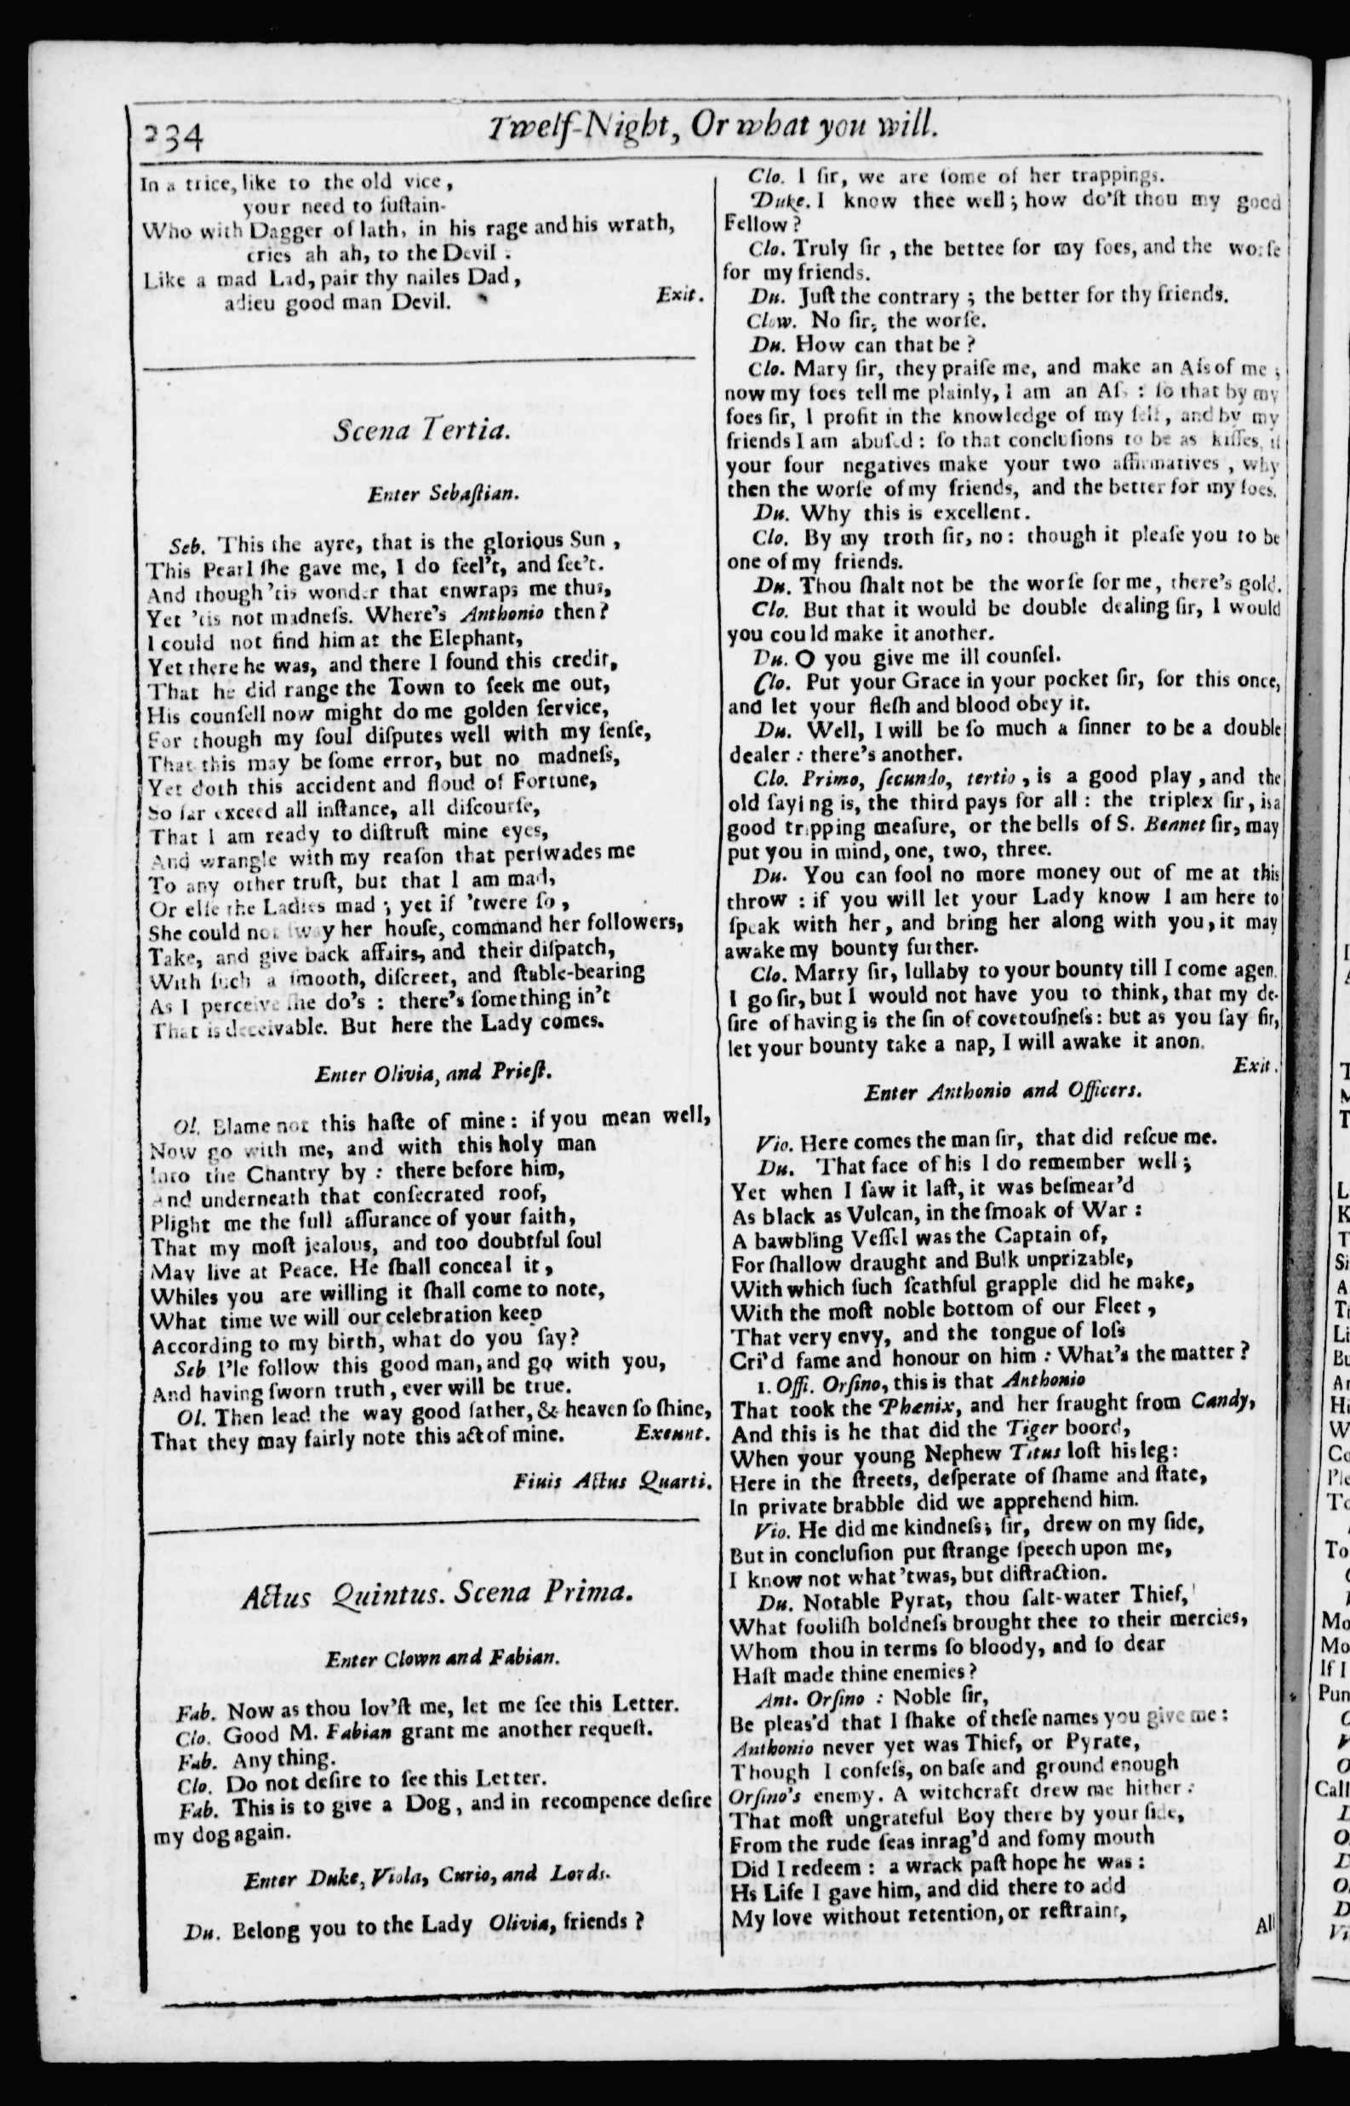 234
Twelf-Night, Or what you will.
In a trice, like to the old vice,
your need to ſuſtain.
Who with Dagger of lath, in his rage and his wrath,
cries ah ah, to the Devil:
Like a mad Lad, pair thy nailes Dad,
adieu good man Devil. Exit.
Scena Tertia.
Enter Sebaſtian.
Seb. This the ayre, that is the glorious Sun,
This Pearl ſhe gave me, I do feel't, and ſee't.
And though 'tis wonder that enwraps me thus,
Yet 'tis not madneſs. Where's Anthonio then?
I could not find him at the Elephant,
Yet there he was, and there I found this credit,
That he did range the Town to ſeek me out,
His counſell now might do me golden ſervice,
For though my ſoul diſputes well with my ſenſe,
That this may be ſome error, but no madneſs,
Yet doth this accident and floud of Fortune,
So far exceed all inſtance, all diſcourſe,
That I am ready to diſtruſt mine eyes,
And wrangle with my reaſon that perſwades me
To any other truſt, but that I am mad,
Or elſe the Ladies mad; yet if 'twere ſo,
She could not ſway her houſe, command her followers,
Take, and give back affairs, and their diſpatch,
With ſuch a ſmooth, diſcreet, and ſtable-bearing
As I perceive ſhe do's: there's ſomething in't
That is deceivable. But here the Lady comes.
Enter Olivia, and Prieſt.
Ol. Blame not this haſte of mine: if you mean well,
Now go with me, and with this holy man
Into the Chantry by: there before him,
And underneath that conſecrated roof,
Plight me the full aſſurance of your faith,
That my moſt jealous, and too doubtful ſoul
May live at Peace. He ſhall conceal it,
Whiles you are willing it ſhall come to note,
What time we will our celebration keep
According to my birth, what do you ſay?
Seb I'le follow this good man, and go with you,
And having ſworn truth, ever will be true.
Ol. Then lead the way good father, & heaven ſo ſhine,
That they may fairly note this act of mine. Exeunt.
Finis Actus Quarti.
Actus Quintus. Scena Prima.
Enter Clown and Fabian.
Fab. Now as thou lov'ſt me, let me ſee this Letter.
Clo. Good M. Fabian grant me another requeſt.
Fab. Any thing.
Clo. Do not deſire to ſee this Letter.
Fab. This is to give a Dog, and in recompence deſire
my dog again.
Enter Duke, Viola, Curio, and Lords.
Du. Belong you to the Lady Olivia, friends?
Clo. I ſir, we are ſome of her trappings.
Duke. I know thee well; how do'ſt thou my good
Fellow?
Clo. Truly ſir, the bettee for my foes, and the worſe
for my friends.
Du. Juſt the contrary; the better for thy friends.
Clow. No ſir, the worſe.
Du. How can that be?
Clo. Mary ſir, they praiſe me, and make an Aſs of me;
now my foes tell me plainly, I am an Aſs: ſo that by my
foes ſir, I profit in the knowledge of my ſelf, and by my
friends I am abuſed: ſo that concluſions to be as kiſſes, if
your four negatives make your two affirmatives, why
then the worſe of my friends, and the better for my foes.
Du. Why this is excellent.
Clo. By my troth ſir, no: though it pleaſe you to be
one of my friends.
Du. Thou ſhalt not be the worſe for me, there's gold.
Clo. But that it would be double dealing ſir, I would
you could make it another.
Du. O you give me ill counſel.
Clo. Put your Grace in your pocket ſir, for this once,
and let your fleſh and blood obey it.
Du. Well, I will be ſo much a ſinner to be a double
dealer: there's another.
Clo. Primo, ſecundo, tertio, is a good play, and the
old ſaying is, the third pays for all: the triplex ſir, is a
good tripping meaſure, or the bells of S. Bennet ſir, may
put you in mind, one, two, three.
Du. You can fool no more money out of me at this
throw: if you will let your Lady know I am here to
ſpeak with her, and bring her along with you, it may
awake my bounty further.
Clo. Marry ſir, lullaby to your bounty till I come agen.
I go ſir, but I would not have you to think, that my de-
ſire of having is the ſin of covetouſneſs: but as you ſay ſir,
let your bounty take a nap, I will awake it anon.
Exit.
Enter Anthonio and Officers.
Vio. Here comes the man ſir, that did reſcue me.
Du. That face of his I do remember well;
Yet when I ſaw it laſt, it was beſmear'd
As black as Vulcan, in the ſmoak of War:
A bawbling Veſſel was the Captain of,
For ſhallow draught and Bulk unprizable,
With which ſuch ſcathful grapple did he make,
With the moſt noble bottom of our Fleet,
That very envy, and the tongue of loſs
Cri'd fame and honour on him: What's the matter?
1. Offi. Orſino, this is that Anthonio
That took the Phœnix, and her fraught from Candy,
And this is he that did the Tiger boord,
When your young Nephew Titus loſt his leg:
Here in the ſtreets, deſperate of ſhame and ſtate,
In private brabble did we apprehend him.
Vio. He did me kindneſs; ſir, drew on my ſide,
But in concluſion put ſtrange ſpeech upon me,
I know not what 'twas, but diſtraction.
Du. Notable Pyrat, thou ſalt-water Thief,
What fooliſh boldneſs brought thee to their mercies,
Whom thou in terms ſo bloody, and ſo dear
Haſt made thine enemies?
Ant. Orſino: Noble ſir,
Be pleas'd that I ſhake of theſe names you give me:
Anthonio never yet was Thief, or Pyrate,
Though I confeſs, on baſe and ground enough
Orſino's enemy. A witchcraft drew me hither:
That moſt ungrateful Boy there by your ſide,
From the rude ſeas inrag'd and fomy mouth
Did I redeem: a wrack paſt hope he was:
Hs Life I gave him, and did there to add
My love without retention, or reſtraint,
All